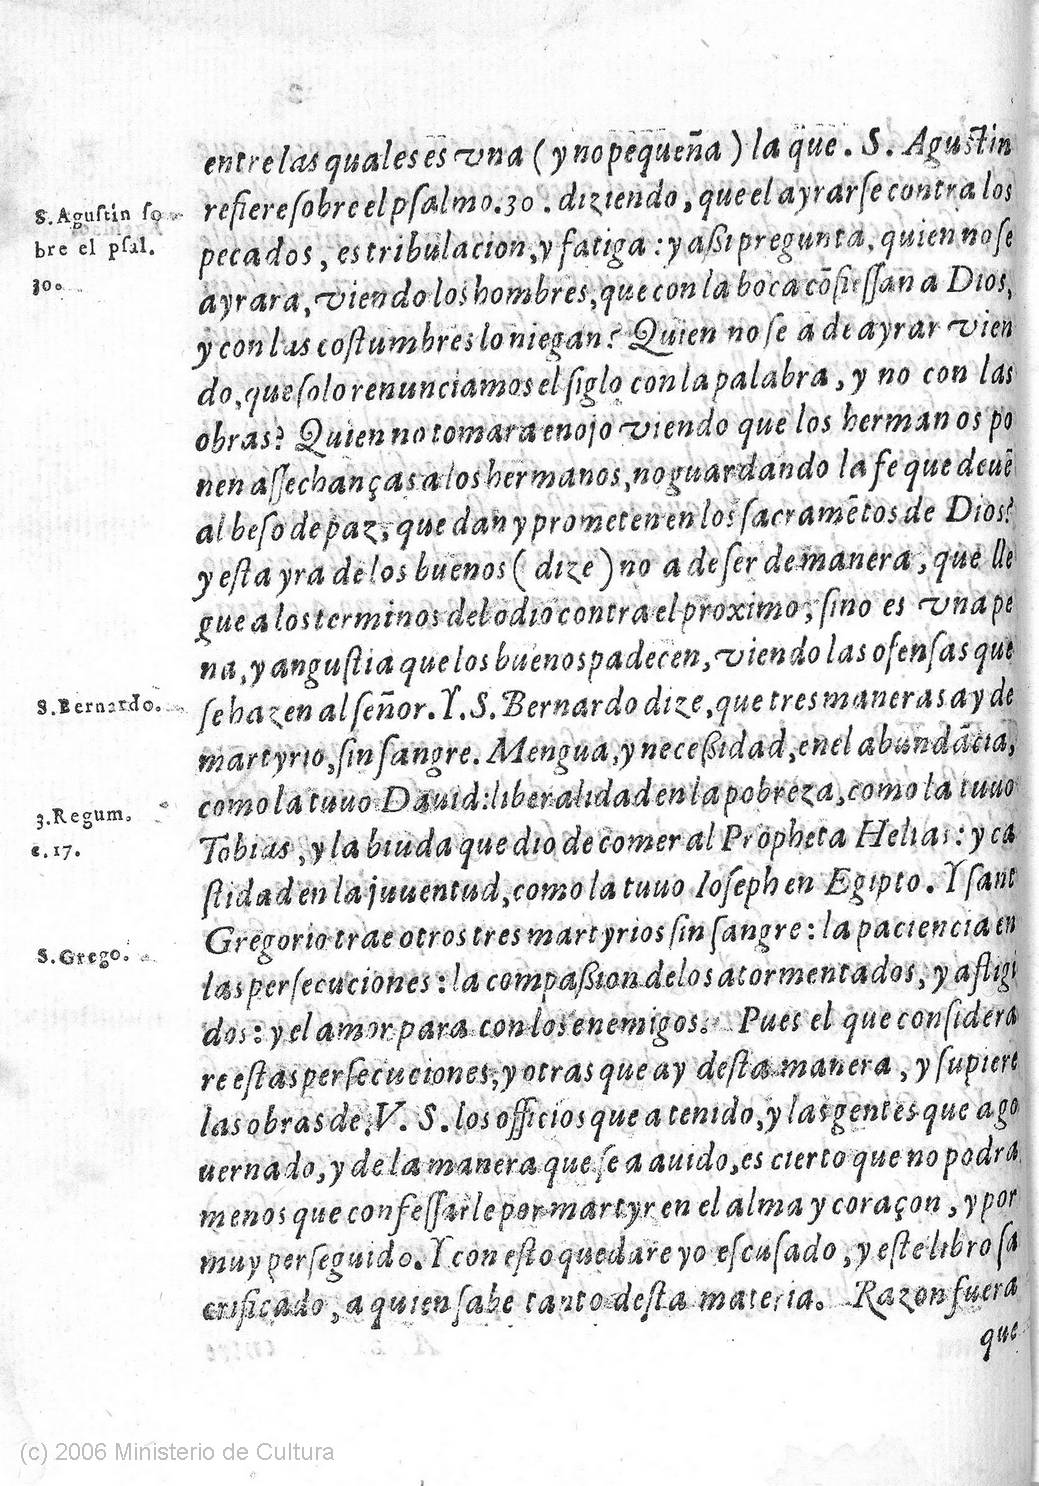 entre las quales es vna ( y no pequeña ) la que . S. Agustin
refiere sobre el psalmo.30. diziendo, que el ayrarse contra los
pecados, es tribulacion, y fatiga : y aßi pregunta, quien no se
ayrara, viendo los hombres, que con la boca cõfiessan a Dios,
y con las costumbres lo niegan? Quien no se a de ayrar vien
do, que solo renunciamos el siglo con la palabra, y no con las
obras? Quien no tomara enojo viendo que los hermanos po
nen assechanças a los hermanos, no guardando la fe que deuẽ
al beso de paz, que dan y prometen en los sacramẽtos de Dios?
y esta yra de los buenos ( dize ) no a de ser de manera, que lle
gue a los terminos del odio contra el proximo, sino es vna pe
na, y angustia que los buenos padecen, viendo las ofensas que
se hazen al señor. Y. S. Bernardo dize, que tres maneras ay de
martyrio, sin sangre. Mengua, y neceßidad, en el abundãcia,
como la tuuo Dauid: liberalidad en la pobreza, como la tuuo
Tobias, y la biuda que dio de comer al Propheta Helias: y ca
stidad en la juuentud, como la tuuo Ioseph en Egipto. Y sant
Gregorio trae otros tres martyrios sin sangre: la paciencia en
las persecuciones: la compaßion de los atormentados, y afligi
dos: y el amor para con los enemigos. Pues el que considera
re estas persecuciones, y otras que ay desta manera, y supiere
las obras de. V. S. los officios que a tenido, y las gentes que a go
uernado, y de la manera que se a auido, es cierto que no podra
menos que confessarle por martyr en el alma y coraçon, y por
muy perseguido. Y con esto quedare yo escusado, y este libro sa
crificado, a quien sabe tanto desta materia. Razon fuera
que
S. Agustin so
bre el psal.
30.
S. Bernardo.
3. Regum.
c. 17.
S. Grego.
(c) 2006 Ministerio de Cultura